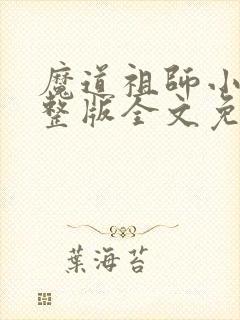 魔道祖師小
整版全文免
葉海苔